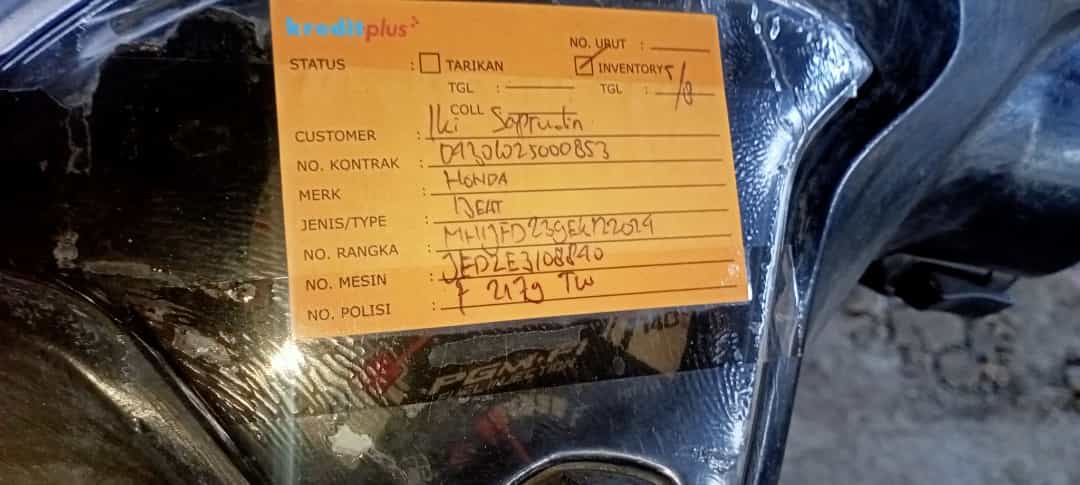 kreditplus
NO. URUT :
STATUS : TARIKAN INVENTORY 5/8
TGL : TGL :
COLL
CUSTOMER : Iki Saprudin
NO. KONTRAK :
MERK : HONDA
JENIS/TYPE : BEAT
NO. RANGKA :
NO. MESIN : JFD2E3108840
NO. POLISI : F TW
PGM-FI